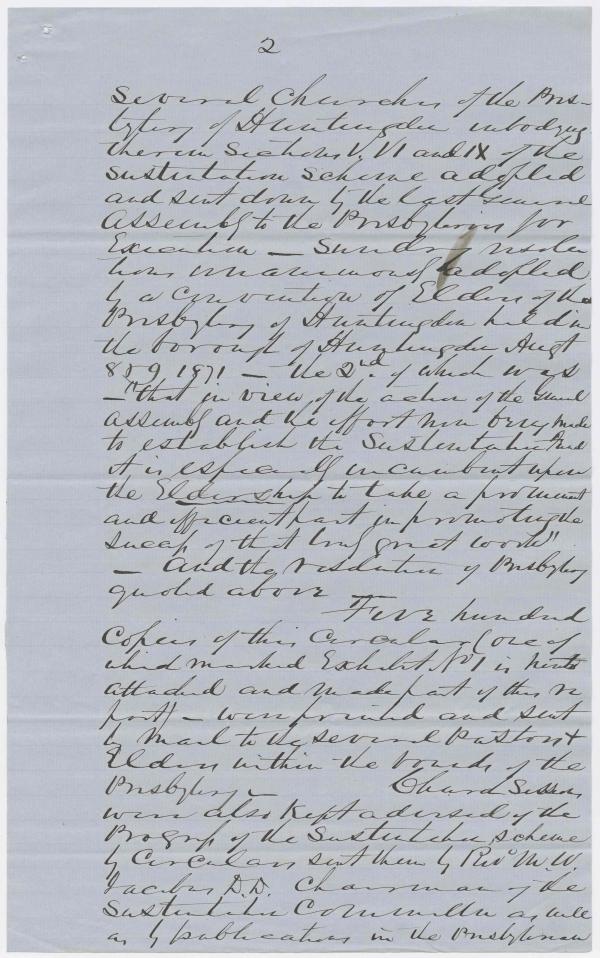 2
Several Churches of the Pres-
bytery of Huntingdon imbodying
therein Sections V. VI and IX of the
Sustentation Scheme adopted
and sent down by the last General
Assembly to the Presbyteries for
Execution — Sundry resolu
tions unanimously adopted
by a convention of Elders of the
Presbytery of Huntingdon held in
the borough of Huntingdon Augt
8 & 9 1871 — the 2nd of which was
— "that in view of the action of the General
Assembly and the effort now being made
to establish the Sustentation Fund
it is especially incumbent upon
the Eldership to take a prominent
and efficient part in promoting the
success of that great work"
— And the resolution of Presbytery
quoted above
Five hundred
Copies of this Circular (one of
which marked Exhibit No 1 is hereto
attached and made part of this re
port) — were printed and sent
by Mail to the several Pastors &
Elders within the bounds of the
Presbytery — Church Sessions
were also Kept advised of the
Progress of the Sustentation scheme
by Circulars sent them by Revd M. W.
Jacobus D.D. Chairman of the
Sustentation Committee as well
as by publications in the Presbyterian